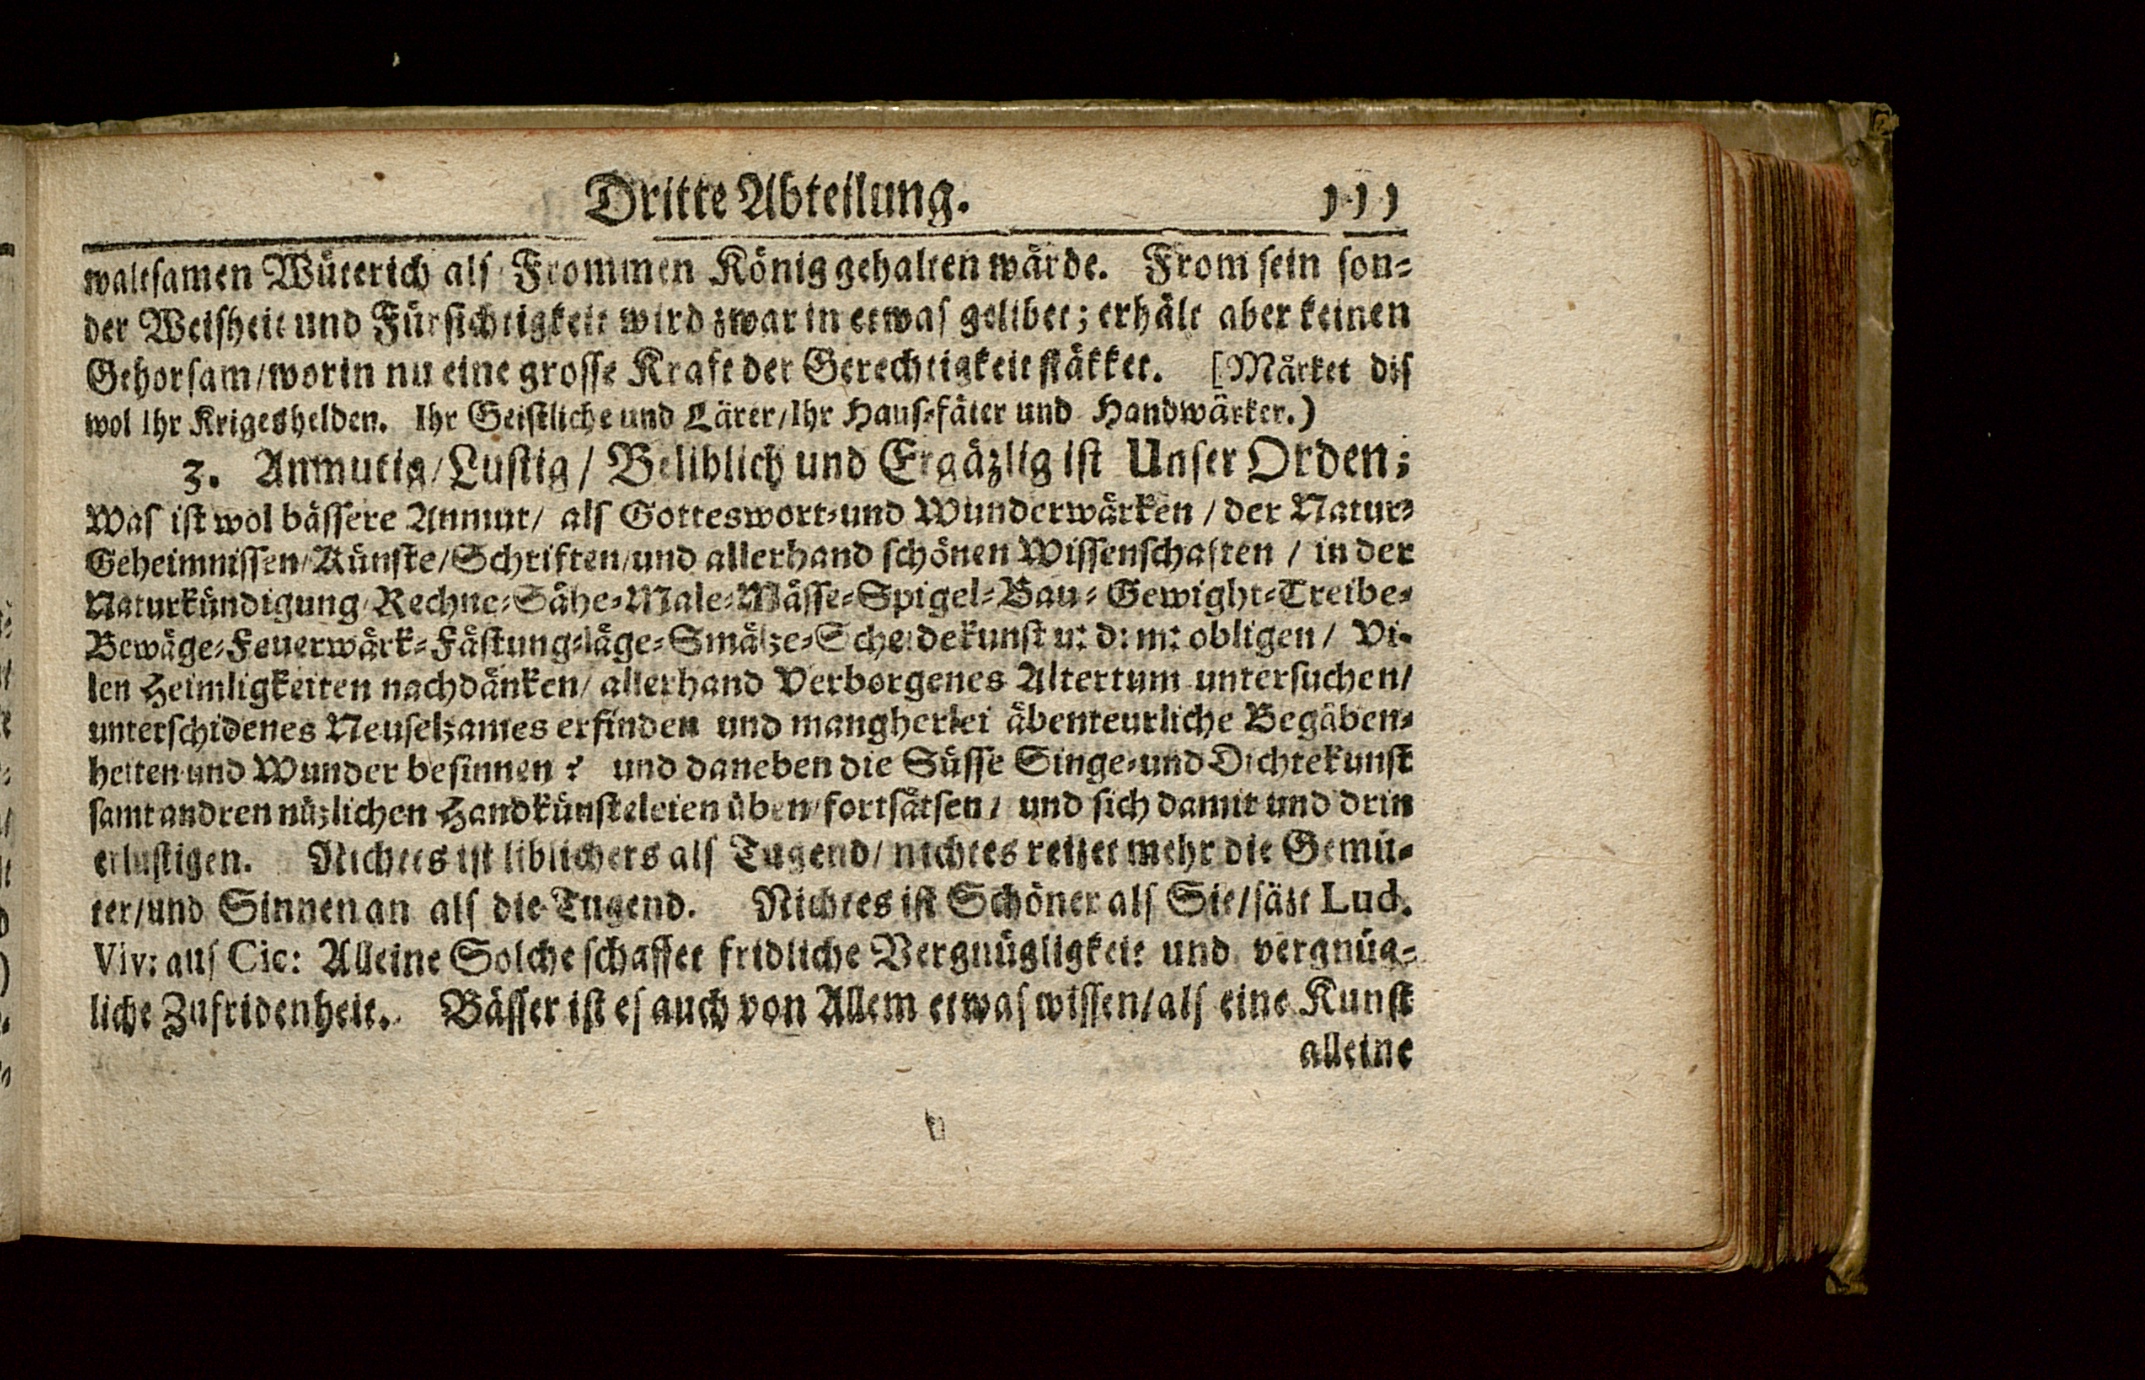 Dritte Abteilung. 111
waltsamen Wüterich als Frommen König gehalten wärde. From sein son⸗
der Weisheit und Fürsichtigkeit wird zwar in etwas gelibet; erhält aber keinen
Gehorsam/worin nu eine grosse Kraft der Gerechtigkeit stäkket. [Märket dis
wol Ihr Krigeshelden. Ihr Geistliche und Lärer/Ihr Haus⸗fäter und Handwärker.)
3. Anmutig/Lustig/ Beliblich und Ergäzlig ist Unser Orden;
Was ist wol bässere Anmut/ als Gotteswort⸗und Wunderwärken / der Natur⸗
Geheimnissen/Künste/Schriften/und allerhand schönen Wissenschaften / in der
Naturkündigung Rechne⸗Sähe⸗Male⸗Mässe⸗Spigel⸗Bau⸗ Gewight⸗Treibe⸗
Bewäge⸗Feuerwärk⸗Fästung⸗läge⸗Smälze⸗Scheidekunst u: d: m: obligen / Vi⸗
len Heimligkeiten nachdänken/ allerhand Verborgenes Altertum untersuchen/
unterschidenes Neuselzames erfinden und mangherlei äbenteurliche Begäben⸗
heiten und Wunder besinnen? und daneben die Süsse Singe⸗und Dichtekunst
samt andren nüzlichen Handkünsteleien üben/fortsätsen/ und sich damit und drin
erlustigen. Nichtes ist liblichers als Tugend/ nichtes reitzet mehr die Gemü⸗
ter/und Sinnen an als die Tugend. Nichtes ist Schöner als Sie/säzt Lud.
Viv: aus Cic: Alleine Solche schaffet fridliche Vergnügligkeit und vergnüg⸗
liche Zufridenheit. Bässer ist es auch von Allem etwas wissen/als eine Kunst
alleine